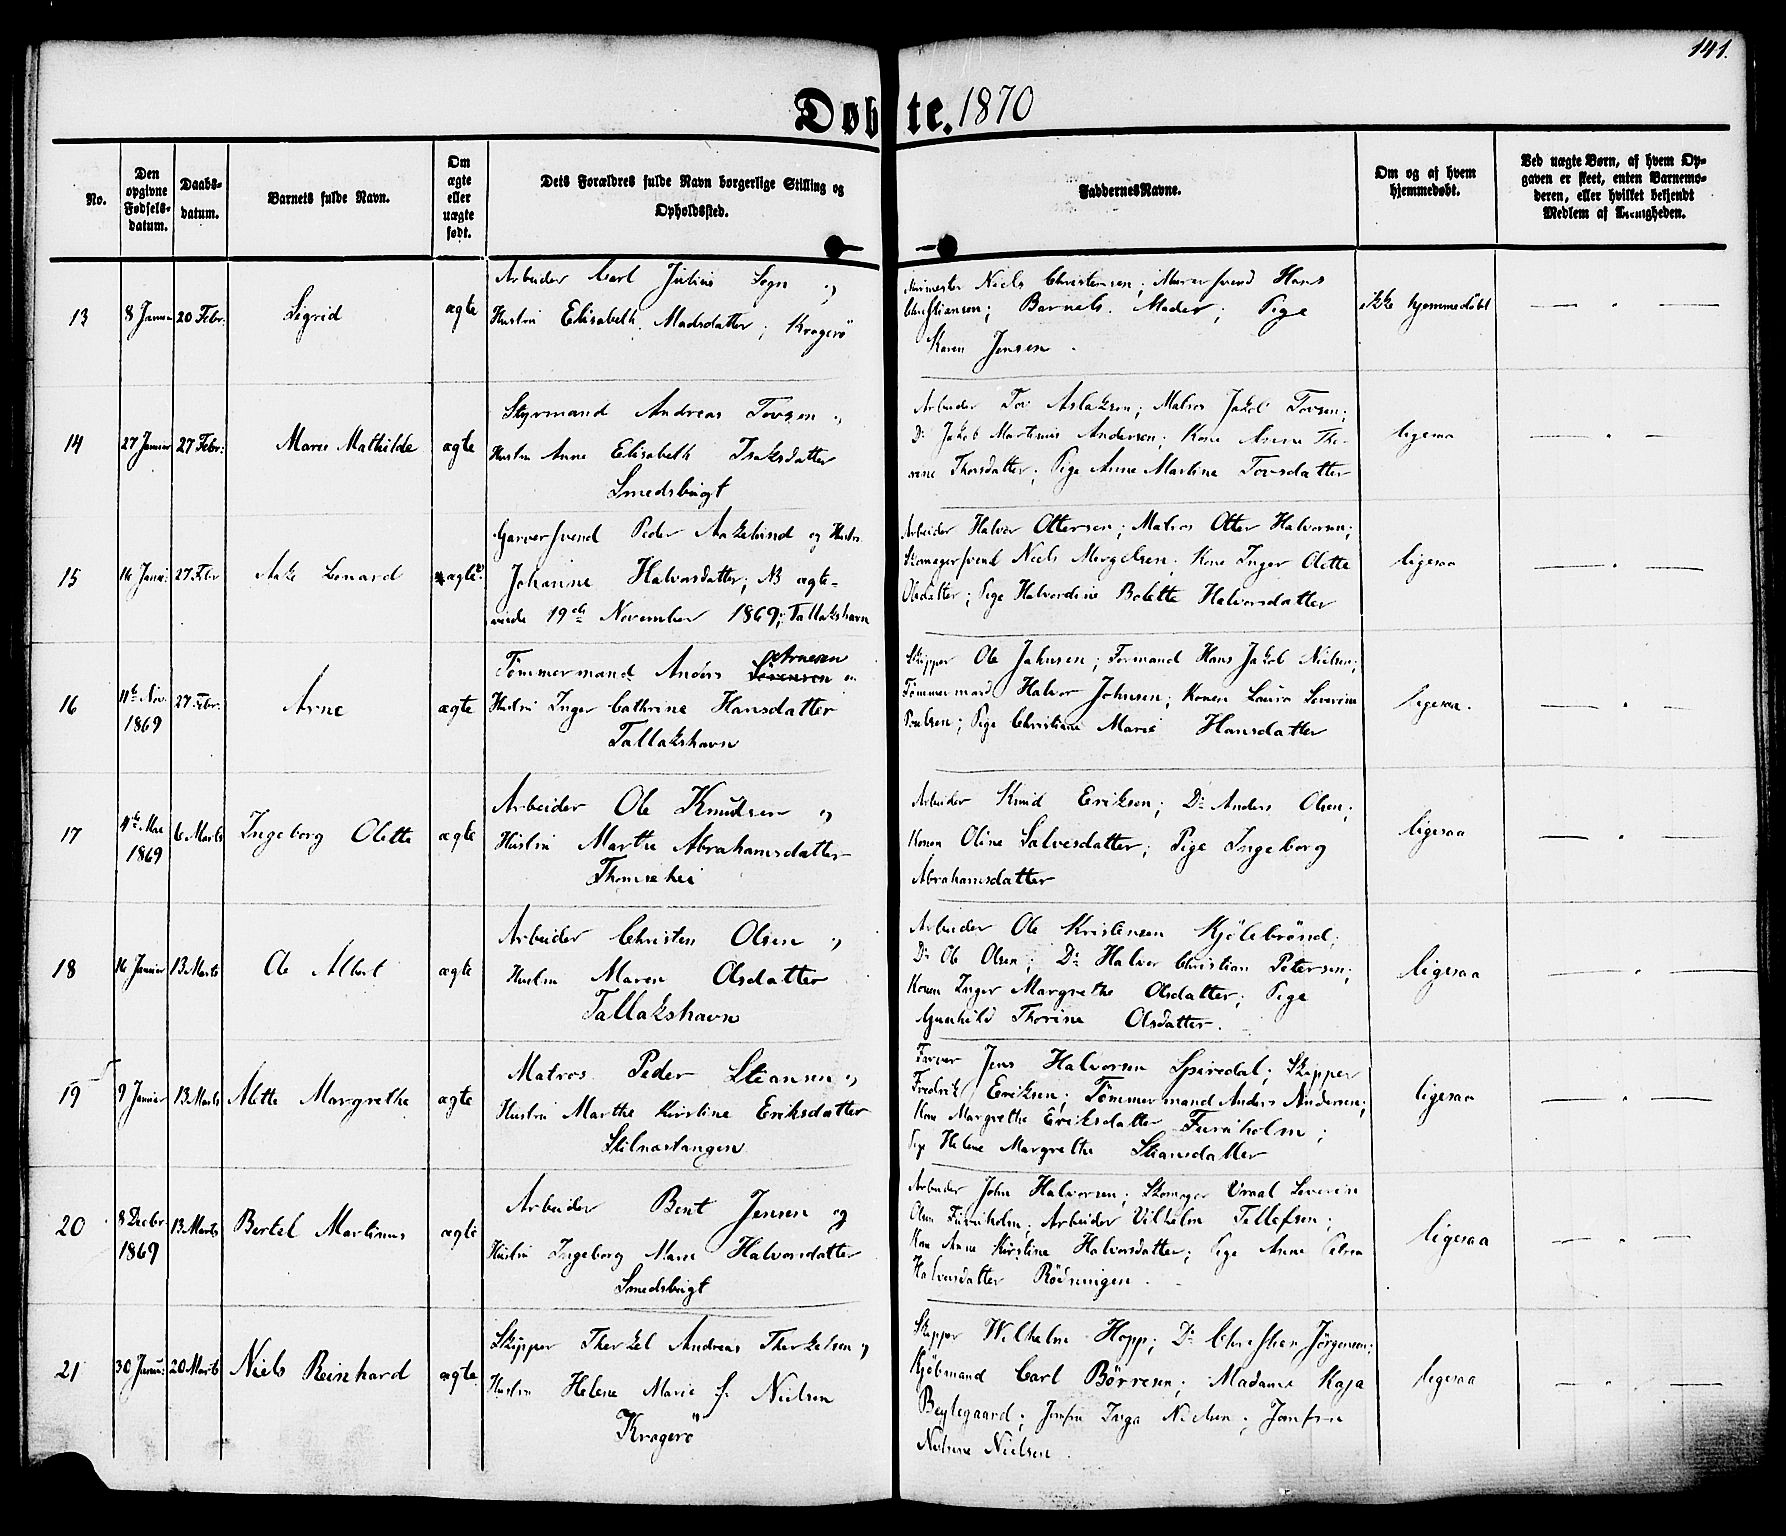 141.
Døbte. 1870
No.
Den opgivne Fødsels-datum.
Daabs-datum.
Barnets fulde Navn.
Om ægte eller uægte født.
Dets Forældres fulde Navn borgerlige Stilling og Opholdssted.
Faddernes Navne.
Om og af hvem hjemmedøbt.
Ved uægte Børn, af hvem Op-
gaven er skeet, enten Barnemo-
deren, eller hvilket bekjendt
Medlem af Menigheden.
13
8 Januar
20 Febr.
Sigrid
ægte
Arbeider Carl Julius Sogn og
Hustru Elisabeth Madsdatter; Kragerö
Niels Christensen; Murersvend Hans
Christiansen; Barnets Moder; Pige
Karen Jensen.
ikke hjemmedöbt
14
27 Januar
27 Febr.
Maren Mathilde
ægte
Styrmand Andreas Tovsen og
Hustru Anne Elisabeth Isaksdatter
Smedsbugt
Arbeider Tov Aslaksen; Matros Jakob Tovsen;
Do Jakob Martinius Andersen; Kone Anne The-
rene Thorsdatter; Pige Anne Martine Tovsdatter
ligesaa
15
16 Janu:
27 Febr
Aake Lenard
ægte
Garversvend Peder Aakelund og Hustru
Johanne Halvorsdatter; NB ægte-
viede 19de November 1869; Tallakshavn
Arbeider Halvor Ottersen; Matros Otter Halvorsen;
Skomagersvend Niels; Kone Inger Olette
Olsdatter; Pige Halvordine Bolette Halvorsdatter
ligesaa
16
11te Nov. 1869
27 Febr.
Arne
ægte
Tömmermand Anders Sörensen Arnesen og
Hustru Inger Cathrine Hansdatter
Tallakshavn
Skipper Ole Johnsen; Formand Hans Jakob Nielsen;
Tömmermand Halvor Johnsen; Konen Laura Severine
Poulsen; Pige Christiane Marie Hansdatter
ligesaa.
17
11te Mai 1869
6 Marts
Ingeborg Olette
ægte
Arbeider Ole Knudsen og
Hustru Marthe Abrahamsdatter
Thomsehei
Arbeider Knud Eriksen; Do Anders Olsen;
Konen Oline Salvesdatter; Pige Ingeborg
Abrahamsdatter
ligesaa
18
16 Januar
13 Marts
Ole Albert
ægte
Arbeider Christen Olsen og
Hustru Maren Olsdatter
Tallakshavn
Arbeider Ole Kristensen Kjölebrönd;
Do Ole Olsen; Do Halvor Christian Petersen;
Konen Inger Margrethe Olsdatter; Pige
Gunhild Thorine Olsdatter.
ligesaa
19
9 Januar
13 Marts
Mette Margrethe
ægte
Matros Peder Stiansen og
Hustru Marthe Kirstine Eriksdatter
Stilnestangen
Farver Jens Halvorsen Spiredal; Skipper
Fredrik Eriksen; Tömmermand Anders Andersen;
Kone Margrethe Eriksdatter Furuholm;
Pige Helene Margrethe Stiansdatter
ligesaa
20
8 Decbr 1869
13 Marts
Bertel Martinus
ægte
Arbeider Bent Jensen og
Hustru Ingeborg Marie Halvorsdatter
Smedsbugt
Arbeider John Halvorsen; Skomager Vraal Severin
Olsen Furuholm; Arbeider Vilhelm Tellefsen;
Kone Anne Kirstine Halvorsdatter; Pige Anne
Halvorsdatter Rödningen.
ligesaa
21
30 Janu:
20 Marts
Niels Reinhard
ægte
Skipper Therkel Andreas Therkelsen og
Hustru Helene Marie f. Nielsen
Kragerö
Skipper Wilhelm Hopp; Do Christian Jörgensen;
Kjöbmand Carl Börresen; Madame Kaja
Beylegaard; Jomfru Inga Nielsen; Jomfru
Nielsine Nielsen.
ligesaa